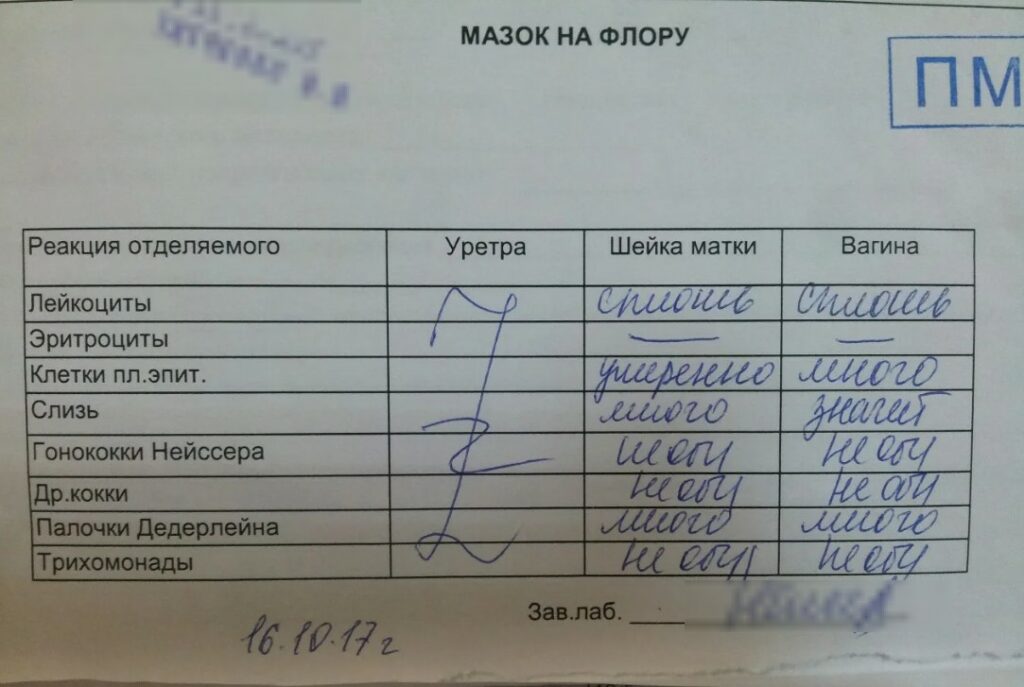 МАЗОК НА ФЛОРУ
ПМ
Реакция отделяемого Уретра Шейка матки Вагина
Лейкоциты сплошь сплошь
Эритроциты — —
Клетки пл.эпит. умеренно много
Слизь много значит
Гонококки Нейссера не обн не обн
Др.кокки не обн не обн
Палочки Дедерлейна много много
Трихомонады не обн не обн
Зав.лаб. ____
16.10.17г